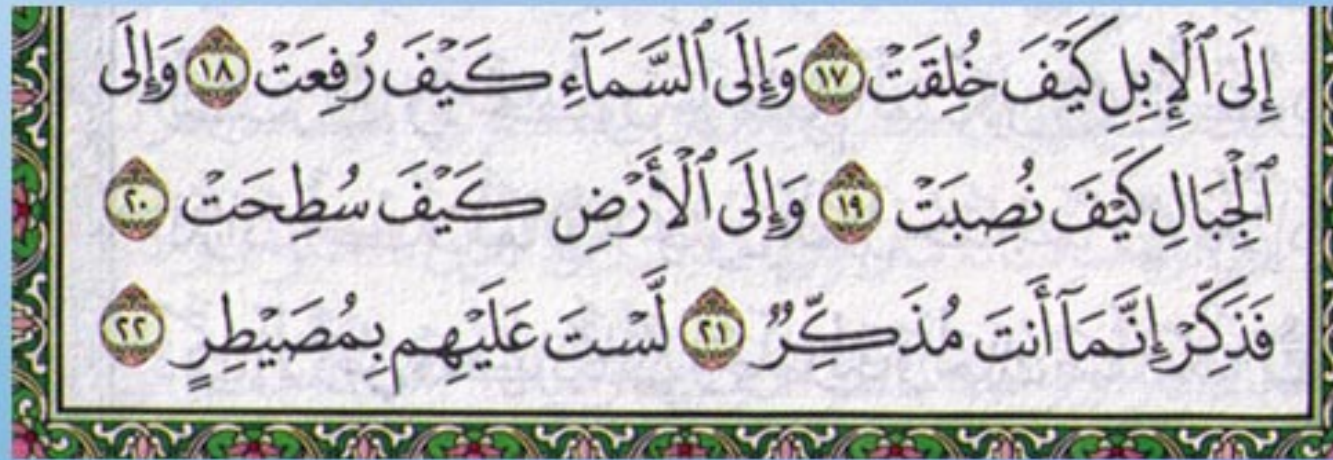 إِلَى ٱلْإِبِلِ كَيْفَ خُلِقَتْ ١٧ وَإِلَى ٱلسَّمَآءِ كَيْفَ رُفِعَتْ ١٨ وَإِلَى
ٱلْجِبَالِ كَيْفَ نُصِبَتْ ١٩ وَإِلَى ٱلْأَرْضِ كَيْفَ سُطِحَتْ ٢٠
فَذَكِّرْ إِنَّمَآ أَنتَ مُذَكِّرٌ ٢١ لَّسْتَ عَلَيْهِم بِمُصَيْطِرٍ ٢٢